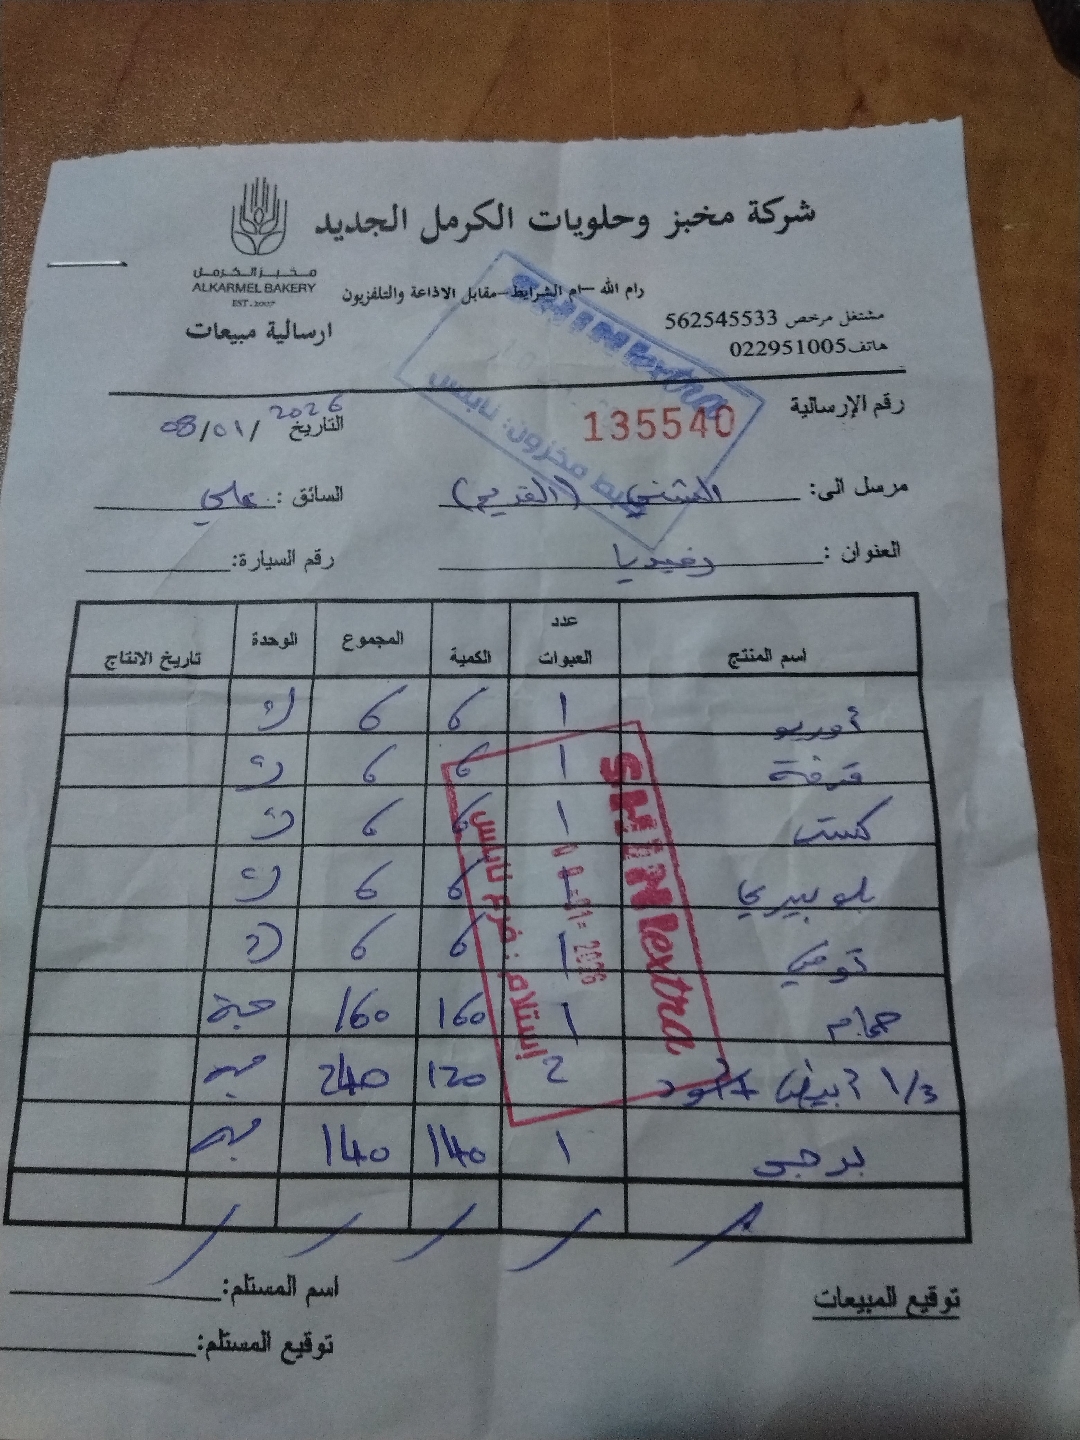 شركة مخبز وحلويات الكرمل الجديد
مخبز الكرمل
ALKARMEL BAKERY
EST-2007
رام الله -ام الشرايط-مقابل الاذاعة والتلفزيون
مشتغل مرخص 562545533
هاتف022951005
ارسالية مبيعات
رقم الإرسالية 135540
التاريخ 08/01/2026
مرسل الى: (القديم)
السائق : علي
العنوان : رفيديا
رقم السيارة:
SHINIextra
نابس
اسم المنتج عدد العبوات الكمية المجموع الوحدة تاريخ الانتاج
أوريو 1 6 6 ك
قرفة 1 6 6 ك
كستر 1 6 6 ك
بلوبيري 1 6 6 ك
توفي 1 6 6 ك
حمام 1 160 160 حبة
1/3 أبيض 2 120 240 حبة
برجر 1 140 140 حبة
SHINIextra
08-01-2026
إستلام: فرع نابلس
توقيع المبيعات
اسم المستلم:
توقيع المستلم: